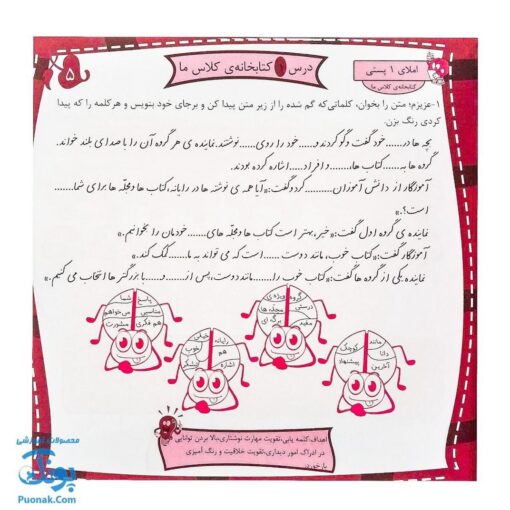 درس ۱ کتابخانه‌ی کلاس ما
املای ۱ پستی
کتابخانه‌ی کلاس ما
۵
۱-عزیزم؛ متن را بخوان، کلماتی‌که گم شده را از زیر متن پیدا کن و برجای خود بنویس و هرکلمه را که پیدا
کردی رنگ بزن.
بچه ها در......خود گفت وگو کردند و......خود را روی......نوشتند. نماینده ی هر گروه آن را با صدای بلند خواند.
گروه ها به........کتاب ها،.....و افراد.....اشاره کرده بودند.
آموزگار از دانش آموزان.........کرد وگفت:«آیا همه ی نوشته ها در رایانه، کتاب ها و مجلّه ها برای شما.......
است؟.»
نماینده ی گروه اول گفت:«خیر، بهتر است کتاب ها و مجلّه های.......خودمان را بخوانیم.»
آموزگار گفت:«کتاب خوب، مانند دوست.......است که می تواند به ما.......کمک کند.»
نماینده یکی از گروه ها گفت:«کتاب خوب را.......مانند دوست، پس از.......و......با بزرگترها انتخاب می کنیم.»
شما
پاسخ
مناسبی
می‌خواهم
هم فکری
مشورت
خیلی
رایانه
خوب
هم
اشاره
گروه
ویژه ی
درستی
مجله ها
مفید
برگه ای
مانند
کوچک
دانا
پیشنهاد
آخرین
اهداف:کلمه یابی،تقویت مهارت نوشتاری،بالا بردن توانایی
در ادراک امور دیداری،تقویت خلاقیت و رنگ آمیزی
بازخورد:
محصولات آموزشی
پونک
Puonak.Com